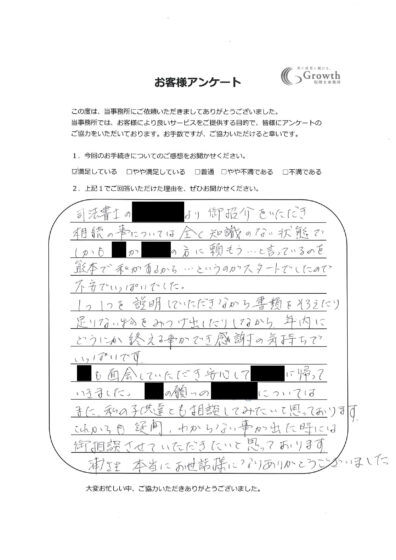 お客様アンケート
Growth
この度は、当事務所にご依頼いただきましてありがとうございました。
当事務所では、お客様により良いサービスをご提供する目的で、皆様にアンケートの
ご協力をいただいております。お手数ですが、ご協力いただけると幸いです。
1．今回のお手続きについてのご感想をお聞かせください。
☑満足している □やや満足している □普通 □やや不満である □不満である
2．上記1でご回答いただけた理由を、ぜひお聞かせください。
司法書士の より御紹介をいただき
相続の事については全く知識のない状態で
しかも か の方に頼もう…と言っているのを
熊本で私がするから…というのがスタートでしたので
不安でいっぱいでした。
1つ1つを説明していただきながら書類をそろえたり
足りない分をみつけ出したりしながら年内に
どうにか終える事ができ感謝の気持ちで
いっぱいです
も面会していただき安心して に帰って
いきました。 の残りの については
また、私の子供達とも相談してみたいと思っております
これからも 疑問、わからない事が出た時には
御相談させていただきたいと思っております
本当にお世話様になりありがとうございました
大変お忙しい中、ご協力いただきありがとうございました。